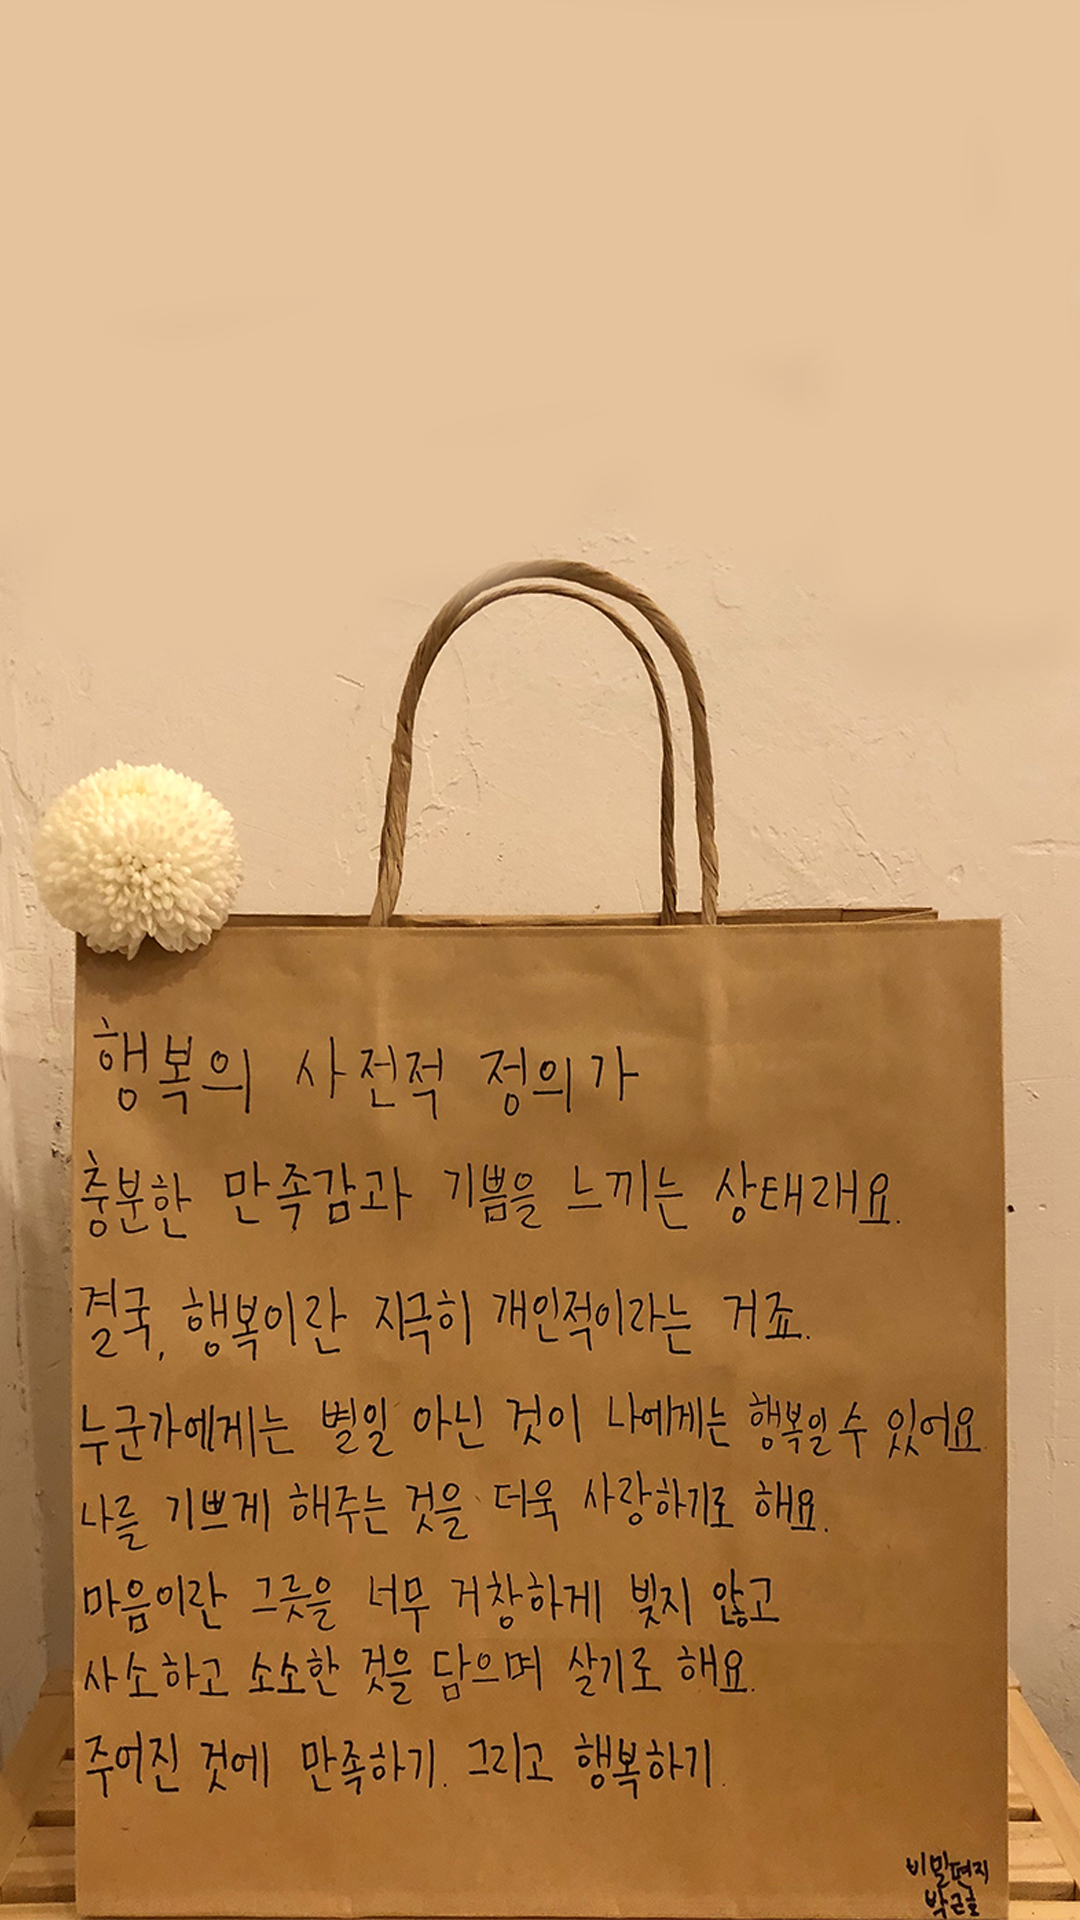 행복의 사전적 정의가
충분한 만족감과 기쁨을 느끼는 상태래요.
결국, 행복이란 지극히 개인적이라는 거죠.
누군가에게는 별일 아닌 것이 나에게는 행복일 수 있어요
나를 기쁘게 해주는 것을 더욱 사랑하기로 해요.
마음이란 그릇을 너무 거창하게 빚지 않고
사소하고 소소한 것을 담으며 살기로 해요.
주어진 것에 만족하기. 그리고 행복하기.
비밀편지
박근호